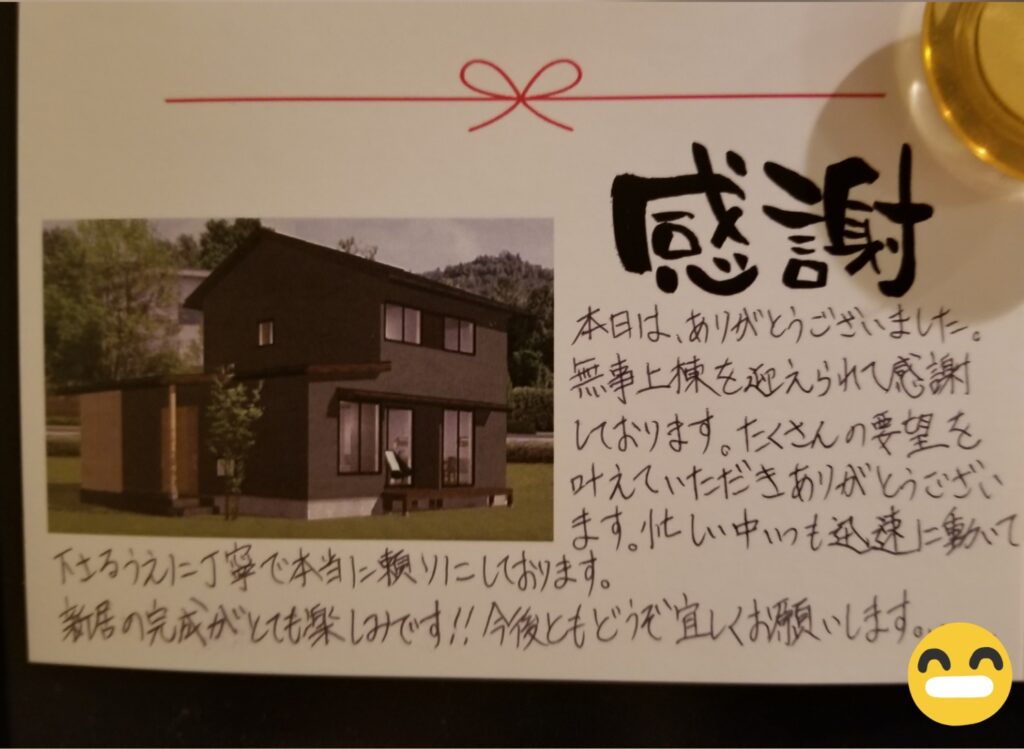 感謝
本日は、ありがとうございました。
無事上棟を迎えられて感謝
しております。たくさんの要望を
叶えていただきありがとうござい
ます。忙しい中いつも迅速に動いて
下さるうえに丁寧で本当に頼りにしております。
新居の完成がとても楽しみです!! 今後ともどうぞ宜しくお願いします。